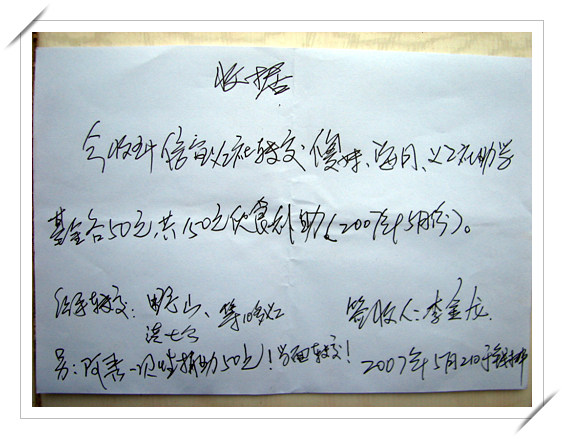 收据
今收到信宜义工社转交傻妹、每日、义工社助学
基金各50元共150元伙食补助(2007年5月份)。
经手转交:野山、等10多义工
洪七公
签收人:李金龙
另:阿表一次性捐助50元!当面转交!
2007年5月2日于